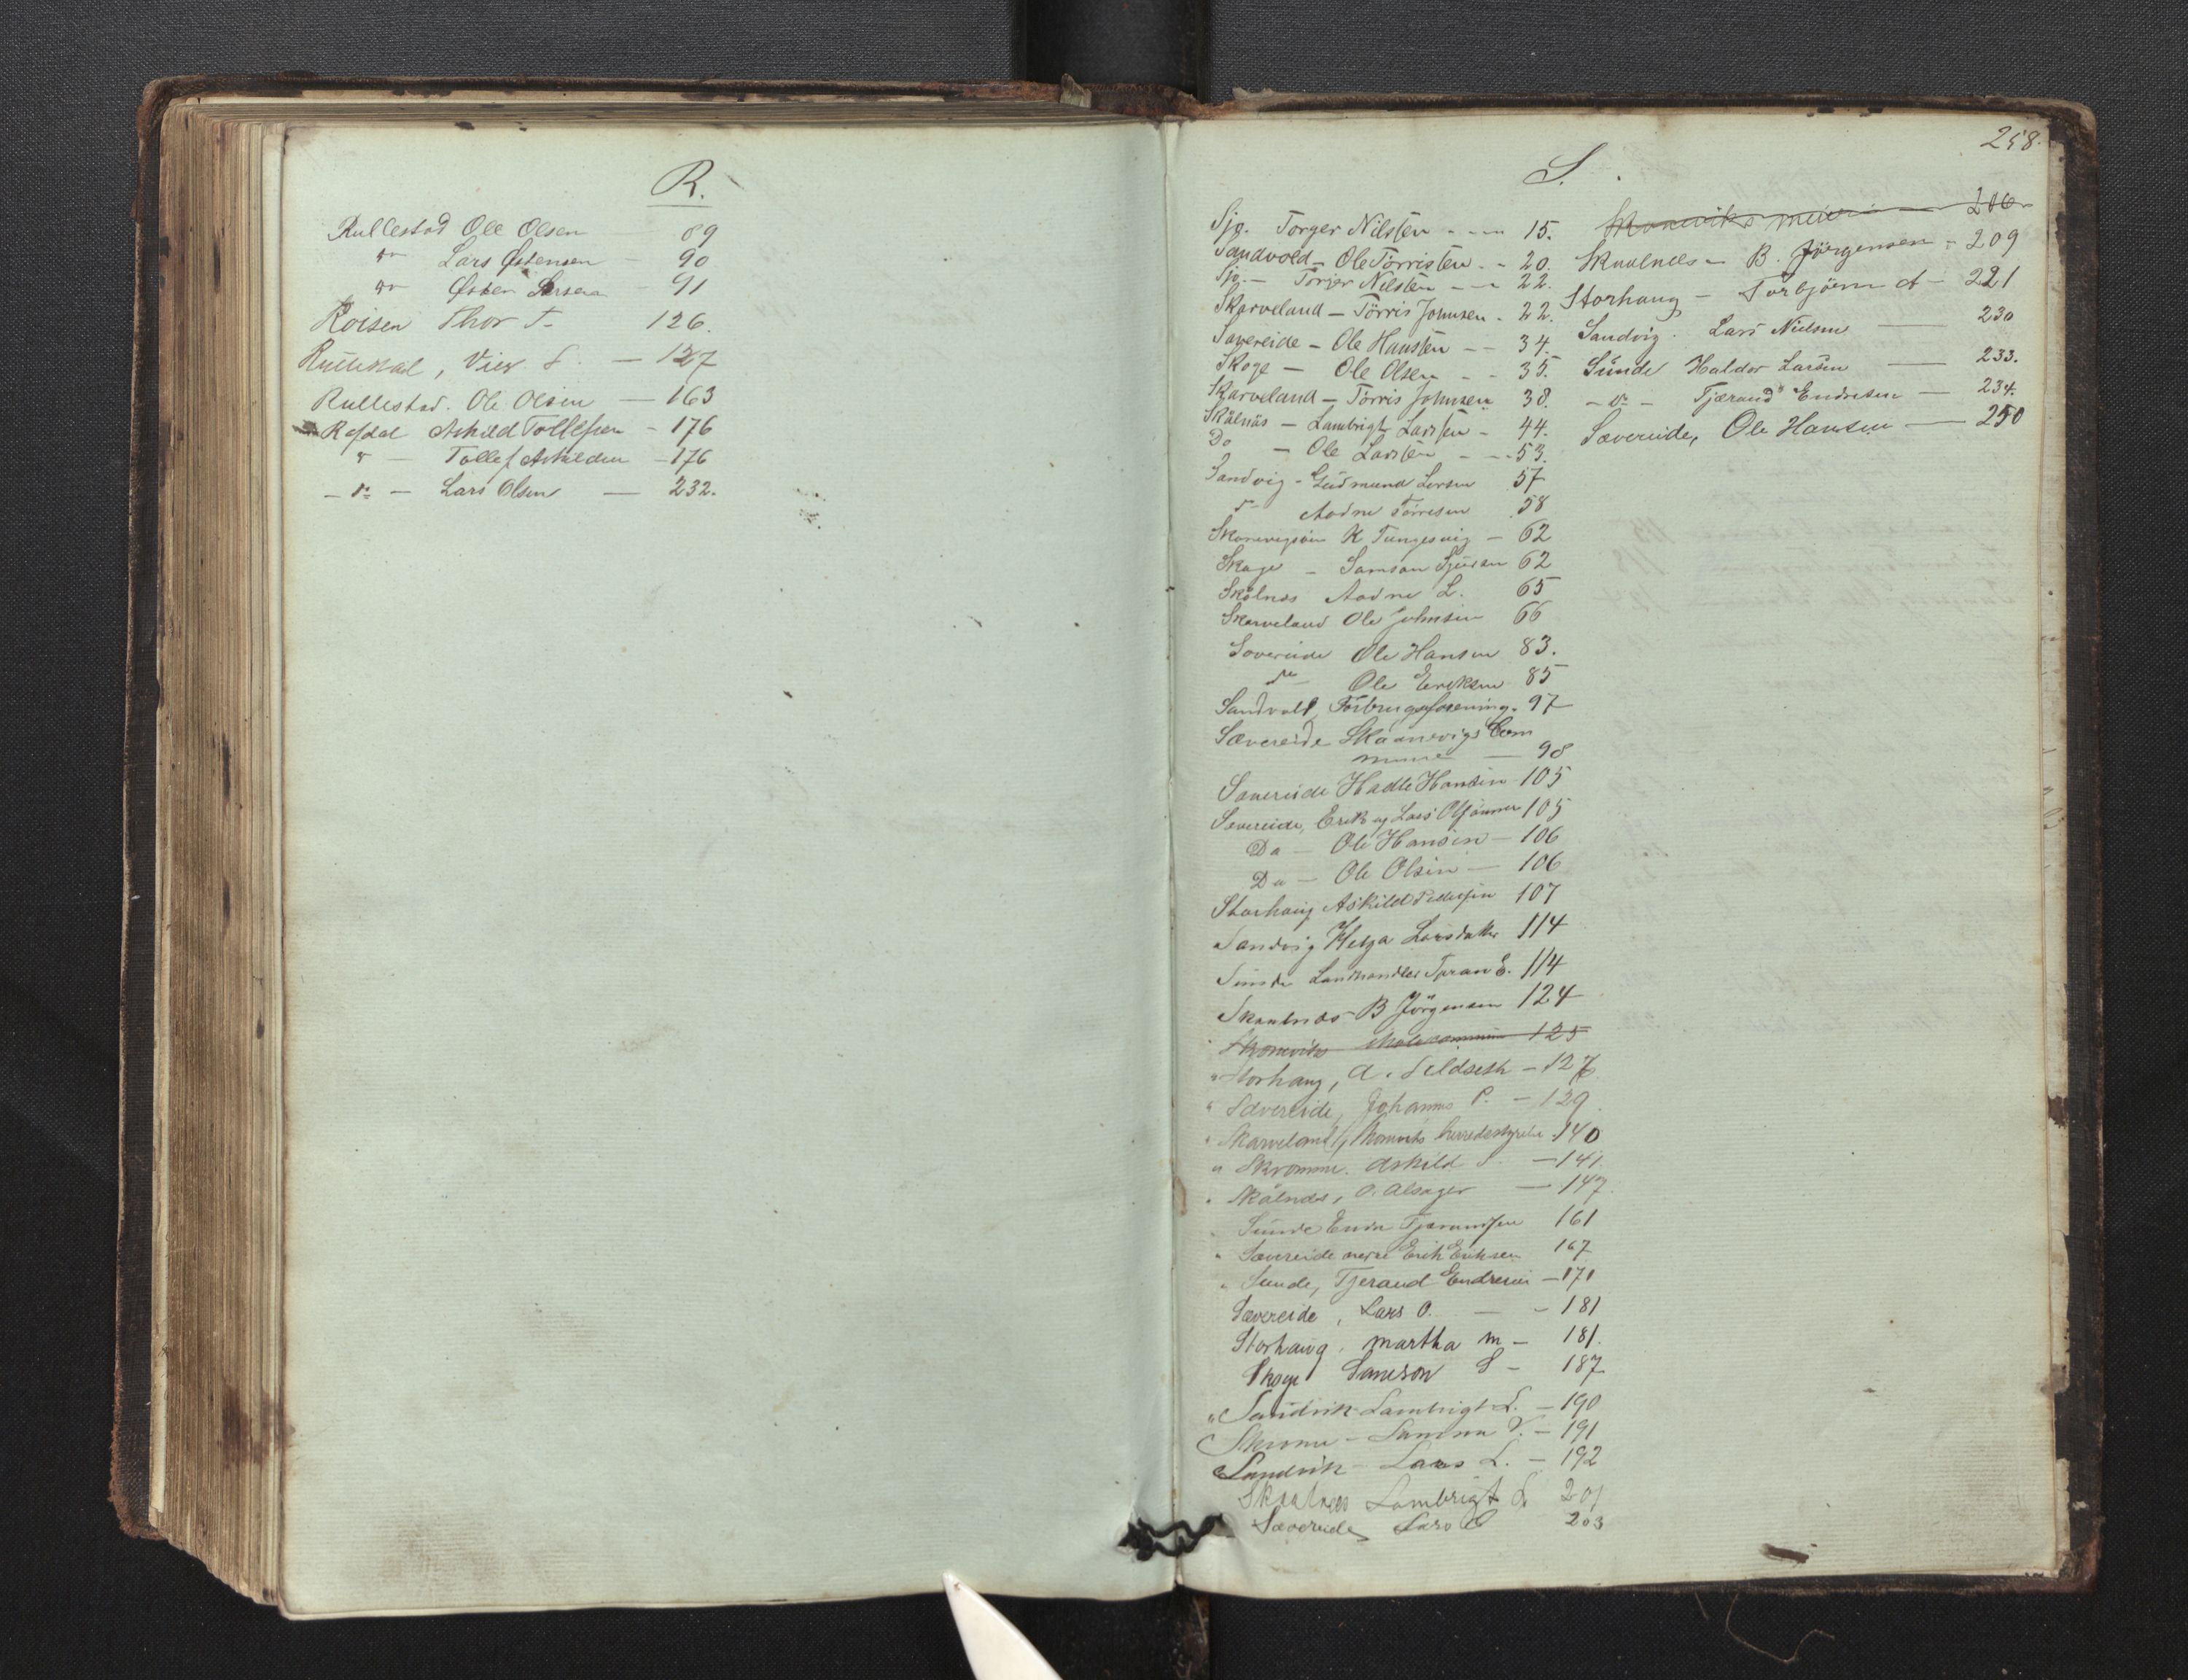 R.
Rullestad Ole Olsen 89
do Lars Østensen - 90
do Østen Larsen - 91
Roisen Thor T. 126.
Rullestad, Vier S. - 127
Rullestad. Ole Olsen - 163
Rafdal Askild Tollefsen - 176
do - Tollef Askildsen - 176
- do - Lars Olsen - 232.
258.
S.
Sjo. Torger Nilssen - - - 15.
Sandvold - Ole Törrissen - - 20.
Sjo - Torger Nilssen - - - 22.
Skarveland - Törris Johnsen - 22.
Savereide - Ole Hanssen - - 34.
Skoge - Ole Olsen - - 35.
Skarveland - Törris Johnsen 38.
Skålnäs - Lambrigt Larssen - 44.
Do - Ole Larssen - - - 53.
Sandvig - Gudmund Larsen 57
do Aadne Törresen 58
K Tungesvig - 62
Skoge - Samson Sjursen 62
Skålnæs Aadne L. 65
Skarveland Ole Johnsen 66
Sævereide Ole Hansen 83.
do Ole Ericksen 85
Sandvold, Forbrugsforening. 97
Sævereide Skaanevigs Com
mune - 98
Savereide Hadle Hansen 105
Sævereide, Erik og Lars Olssönner 105
Do - Ole Hansen - 106
Do - Ole Olsen - 106
Storhaug Askild Pedersen 107
Sandvig Helga Larsdatter 114
Sunde Landhandler Tjeran E. 114
Skaalnæs B Jörgensen 124
Skonevik Skolecommune 125
Storhaug, A. Sildseth - 127
Sævereide, Johannes P. - 129
Skarveland, Skonevik herredsstyrelse 140
Skromme. Askild S. - 141.
Skålnæs, O. Alsager - 147.
Sunde Endre Tjerandsen 161
Sævereide nedre Erik Eriksen 167
Sunde, Tjerand Endresen - 171
Sævereide, Lars O. - - 181
Storhaug, Martha M - 181.
Skoge Samson S - 187
Sandvik Lambrigt L. - 190
Skrome - Samson V. - 191
Sandvik - Lars L. - 192
Skaalnes Lambrigt L 201
Sævereide Lars O 203
Skonevik's meieri - 206
Skaalnes - B. Jörgensen - 209
Storhaug - Torbjörn A - 221
Sandvig. Lars Nielsen - 230
Sunde Haldor Larsen - 233.
- do - Tjærand Endresen - 234.
Sævereide, Ole Hansen - 250